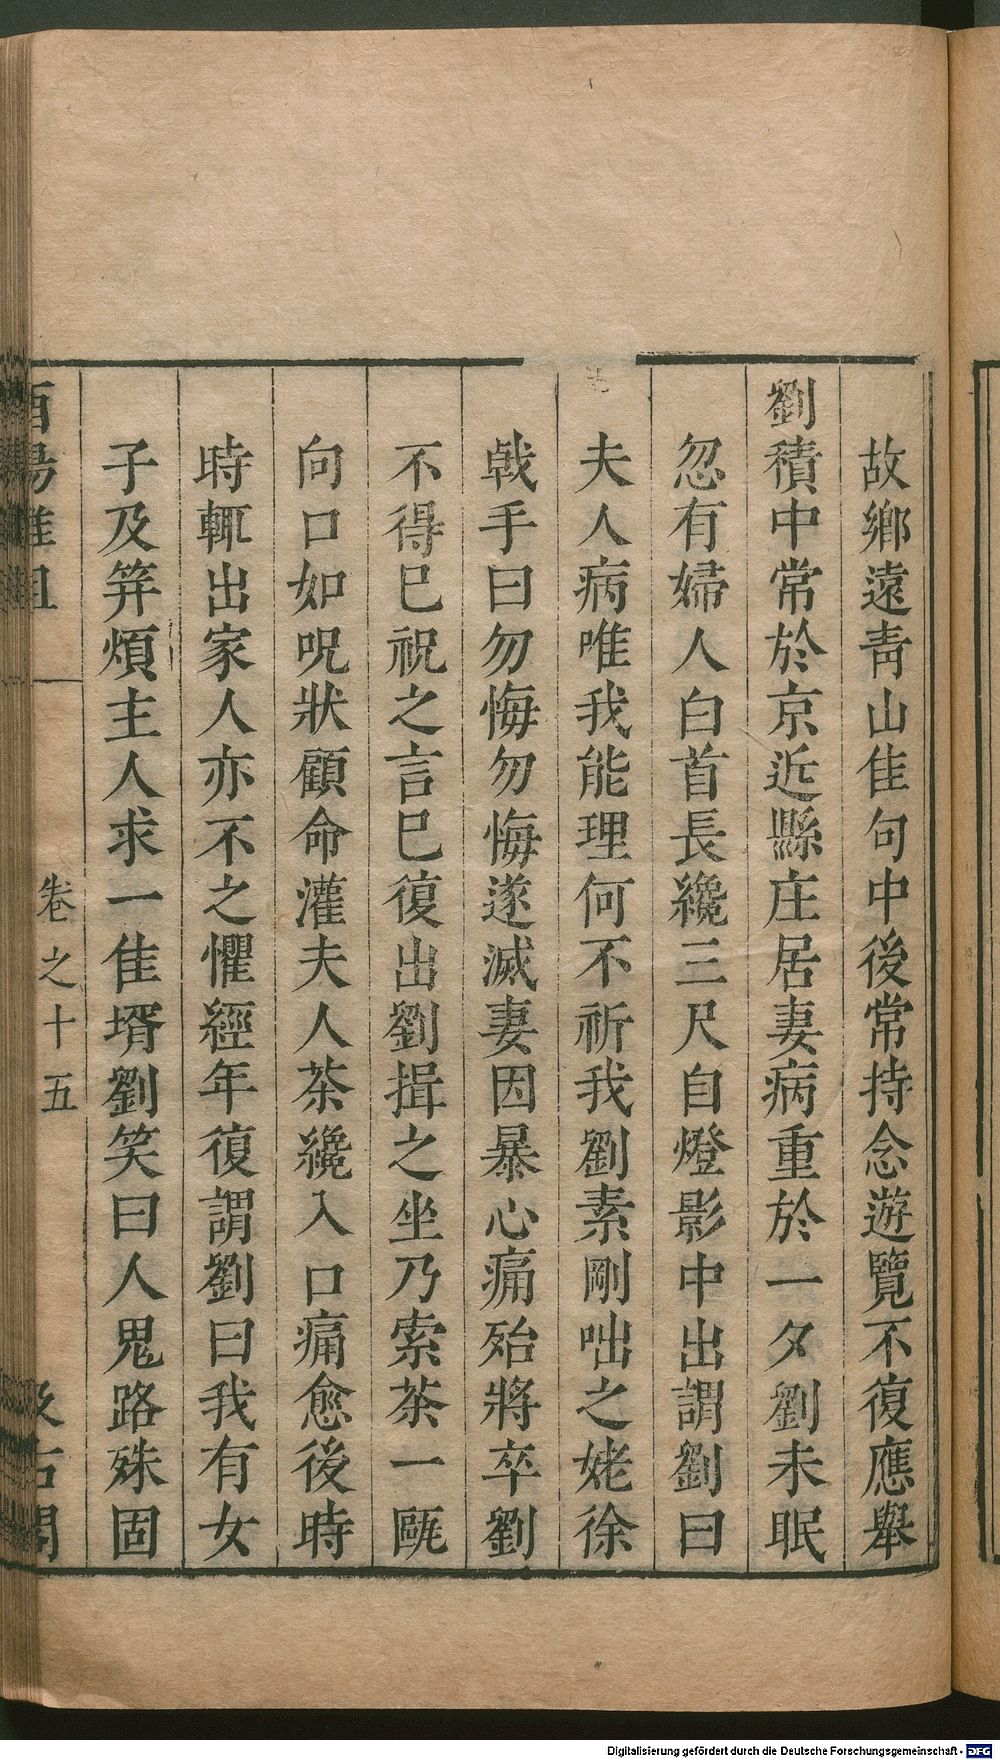 故鄉遠青山佳句中後常持念遊覽不復應舉
劉積中常於京近縣庄居妻病重於一夕劉未眠
忽有婦人白首長纔三尺自燈影中出謂劉曰
夫人病唯我能理何不祈我劉素剛咄之姥徐
戟手曰勿悔勿悔遂滅妻因暴心痛殆將卒劉
不得已祝之言已復出劉揖之坐乃索茶一甌
向口如呪狀顧命灌夫人茶纔入口痛愈後時
時輒出家人亦不之懼經年復謂劉曰我有女
子及笄煩主人求一佳壻劉笑曰人鬼路殊固
酉陽雜俎 卷之十五 汲古閣
Digitalisierung gefördert durch die Deutsche Forschungsgemeinschaft - DFG